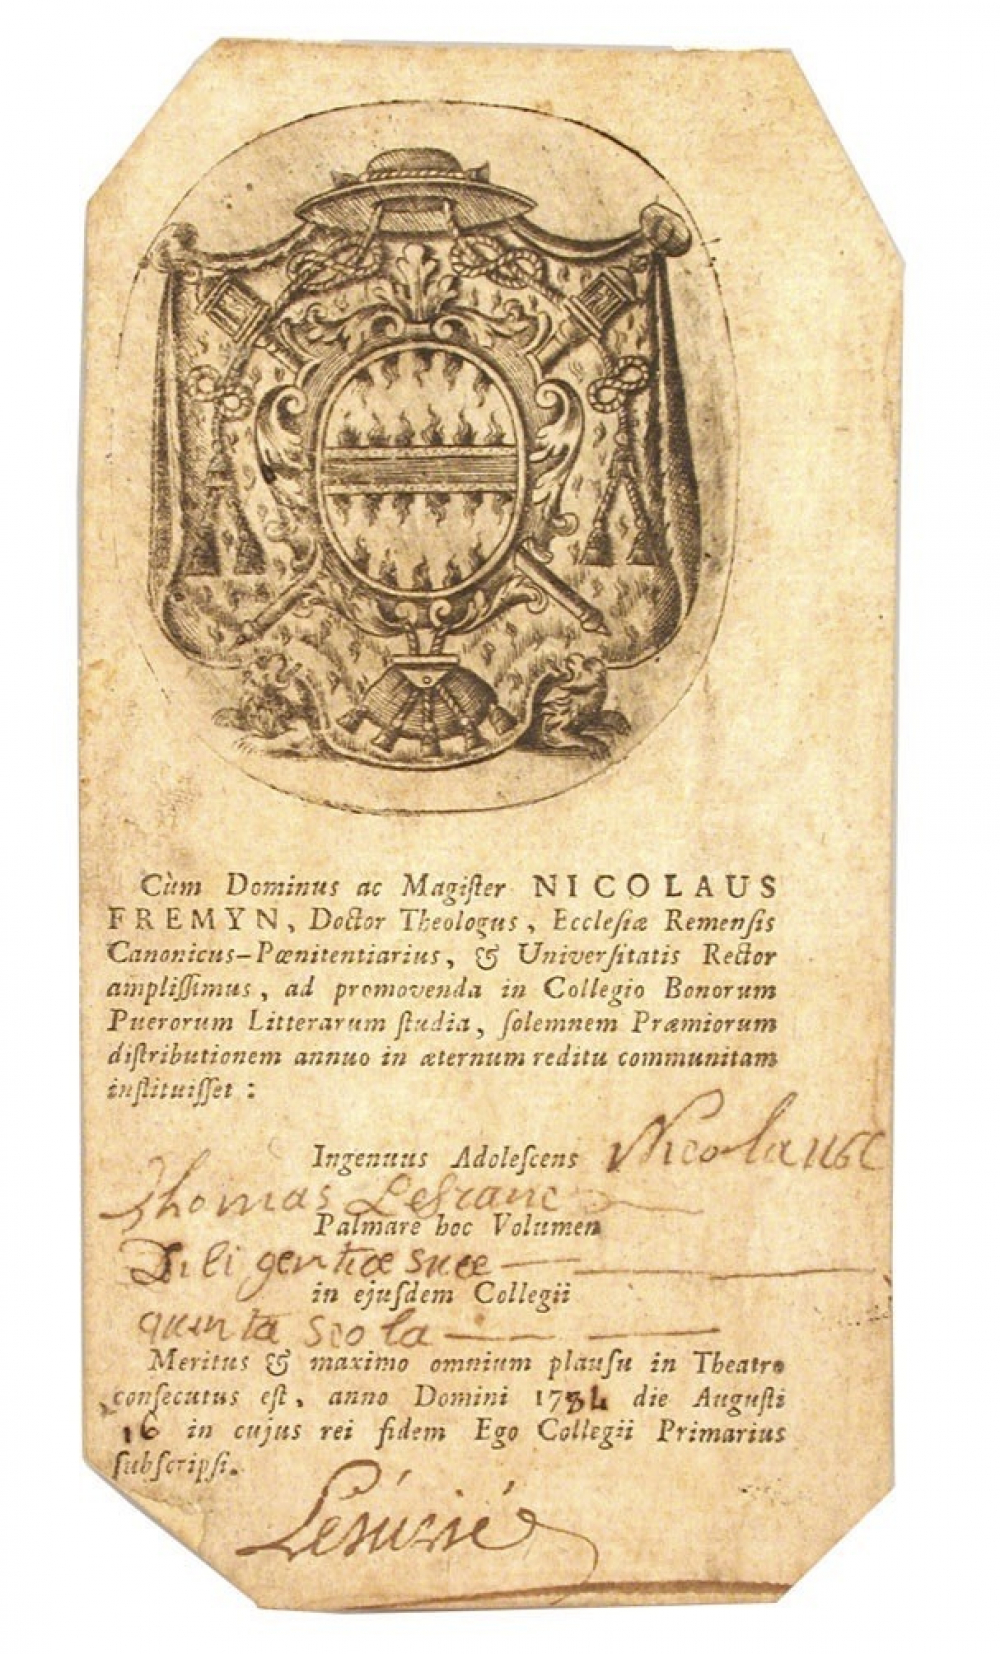 Cùm Dominus ac Magiſter NICOLAUS
FREMYN, Doctor Theologus, Eccleſiæ Remenſis
Canonicus-Pœnitentiarius, & Univerſitatis Rector
ampliſſimus, ad promovenda in Collegio Bonorum
Puerorum Litterarum ſtudia, ſolemnem Præmiorum
diſtributionem annuo in æternum reditu communitam
inſtituiſſet :
Ingenuus Adoleſcens Nicolaus
Thomas Lefranc
Palmare hoc Volumen
Diligentiæ suæ
in ejuſdem Collegii
quinta scola
Meritus & maximo omnium plauſu in Theatro
conſecutus eſt, anno Domini 1784 die Auguſti
16 in cujus rei fidem Ego Collegii Primarius
ſubſcripſi.